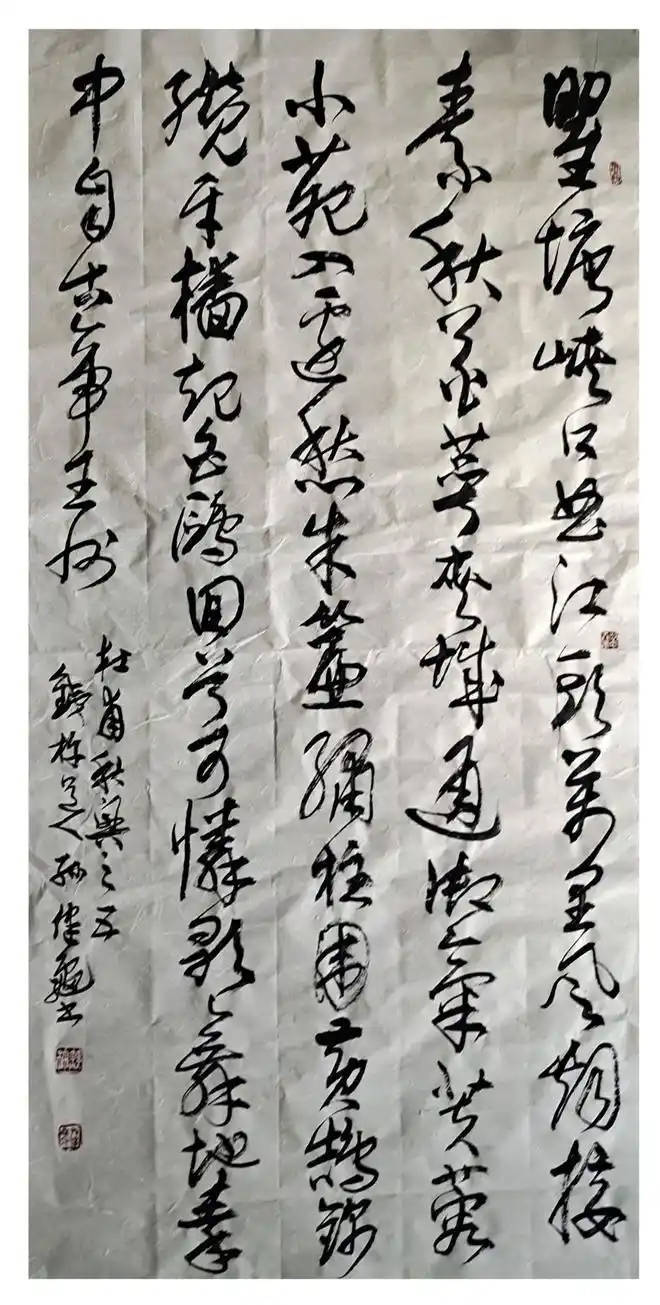 瞿塘峽口曲江頭萬里風烟接
素秋花萼夾城通御氣芙蓉
小苑入邊愁朱簾繡柱圍黃鵠錦
纜牙檣起白鷗回首可憐歌舞地秦
中自古帝王州
杜甫秋興之五
道人孫偉書